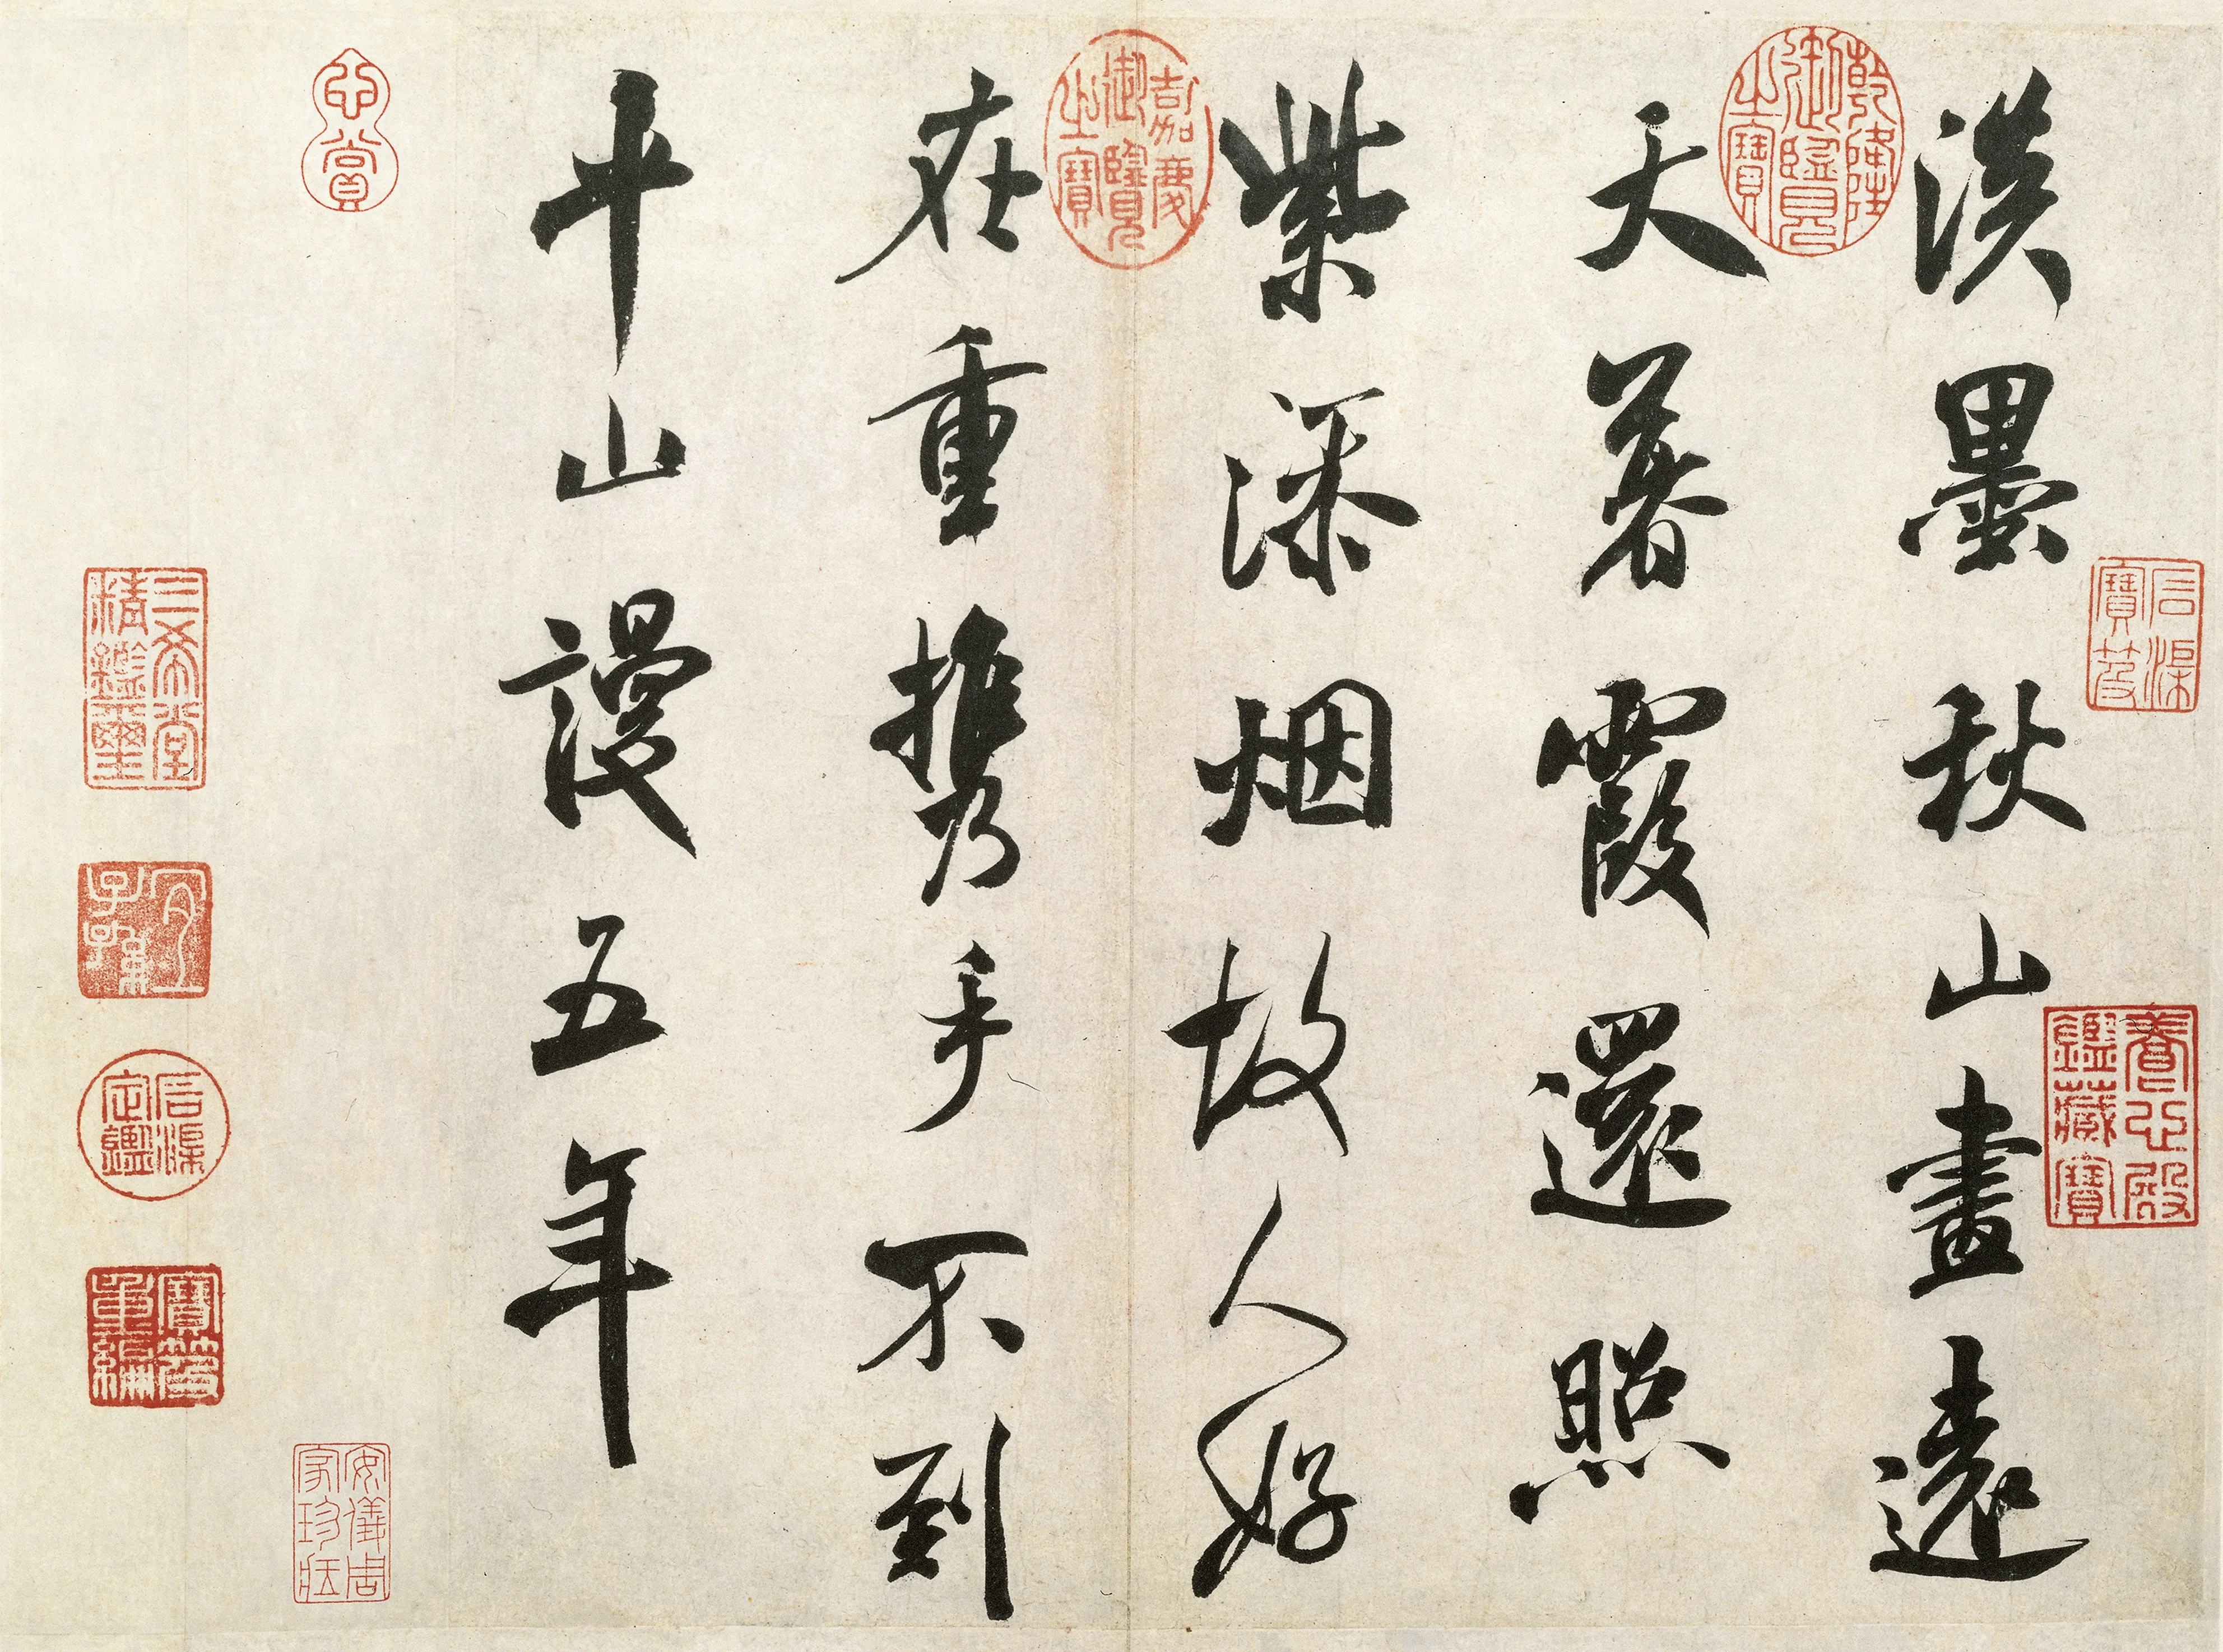 淡墨秋山畫遠
天暮霞還照
紫添烟故人好
在重携手不到
平山謾五年
石渠寶笈
養心殿鑑藏寶
乾隆御覽之寶
嘉慶御覽之寶
心賞
安儀周家珍藏
三希堂精鑑璽
宜子孫
石渠定鑑
寶笈重編